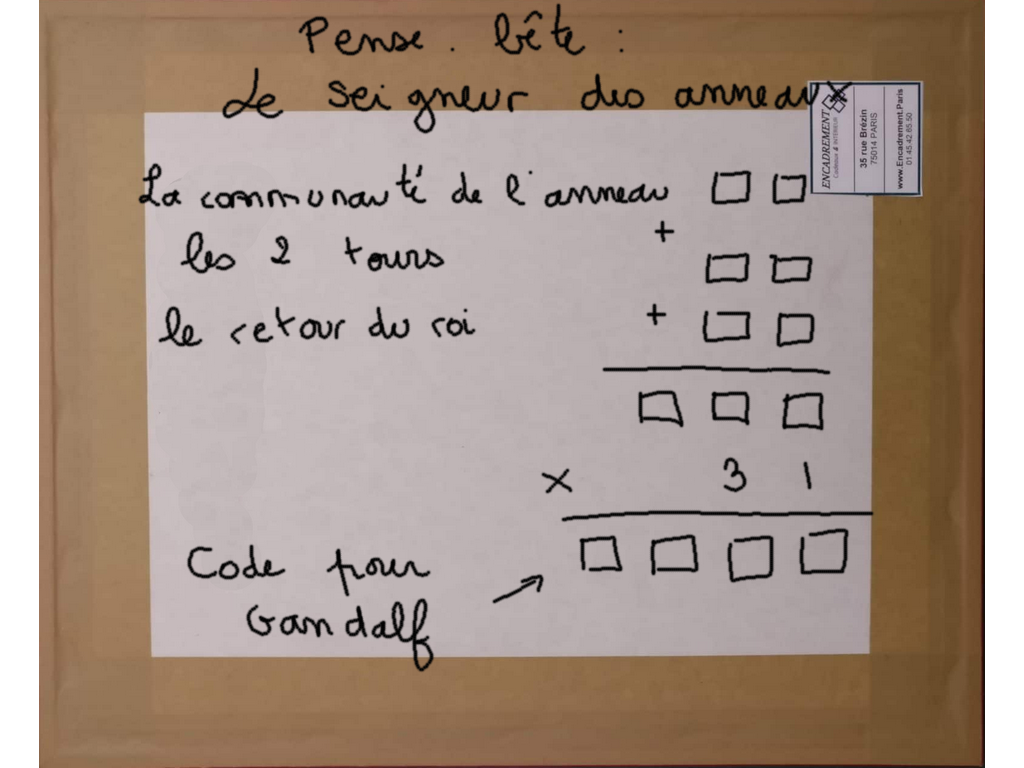 Pense. bête :
Le seigneur des anneaux
ENCADREMENT
Cadeaux & INTERIEUR
35 rue Brézin
75014 PARIS
www.Encadrement.Paris
01.45.42.65.50
La communauté de l'anneau □ □
+
les 2 tours □ □
le retour du roi + □ □
□ □ □
× 3 1
□ □ □ □
Code pour
Gandalf →